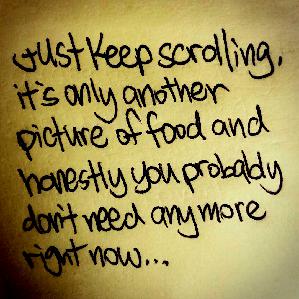 Just keep scrolling,
it's only another
picture of food and
honestly you probably
don't need any more
right now...